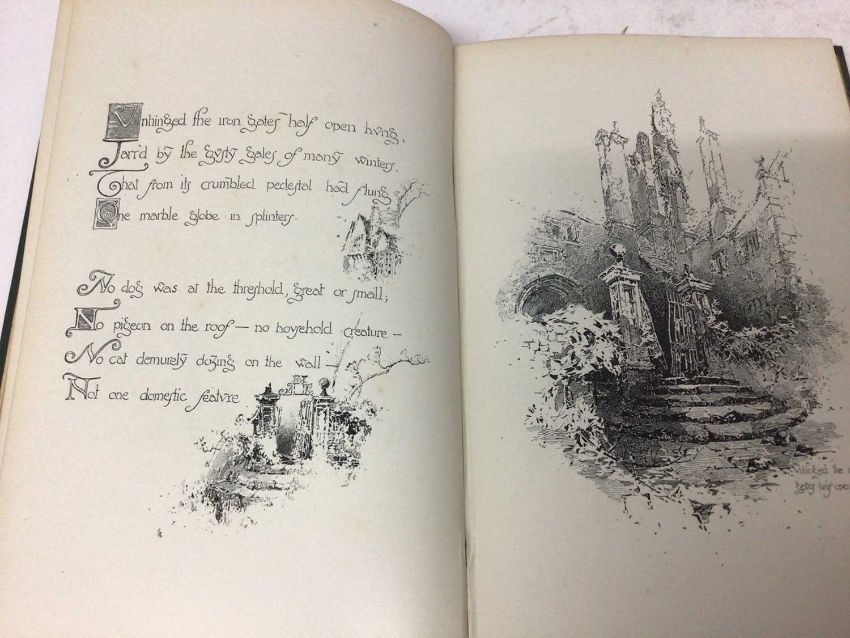 Vnhinged the iron gates half open hvng,
Jarr'd by the gvsty gales of many winters,
That from its crumbled pedestal had flung
One marble globe in splinters.
No dog was at the threshold, great or small;
No pigeon on the roof — no hovsehold creature —
No cat demurely dozing on the wall —
Not one domestic featvre
Vnhinged the
gates half open